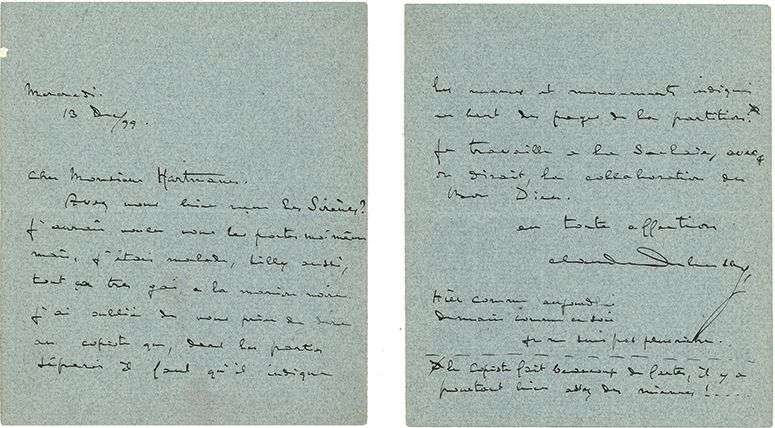 Mercredi.
13 Dec/99.
Cher Monsieur Hartmann.
Avez vous bien reçu les Sirènes?
J'aurais voulu vous les porter moi même
mais, j'étais malade, Lilly aussi,
tout ça très gai à la maison
j'ai oublié de vous prier de dire
au copiste que, dans les parties
séparées il faut qu'il indique
les mêmes mouvements indiqués
en haut des pages de la partition.
Je travaille à la Saulaie, avec,
on dirait, la collaboration du
Bon Dieu.
en toute affection
Claude Debussy
Hier comme aujourd
demain comme
Je ne suis pas
le copiste fait beaucoup de fautes, il y a
pourtant bien assez des miennes!....